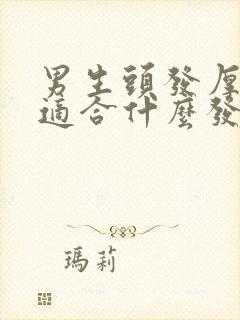 男生頭發厚
適合什麼發
瑪莉